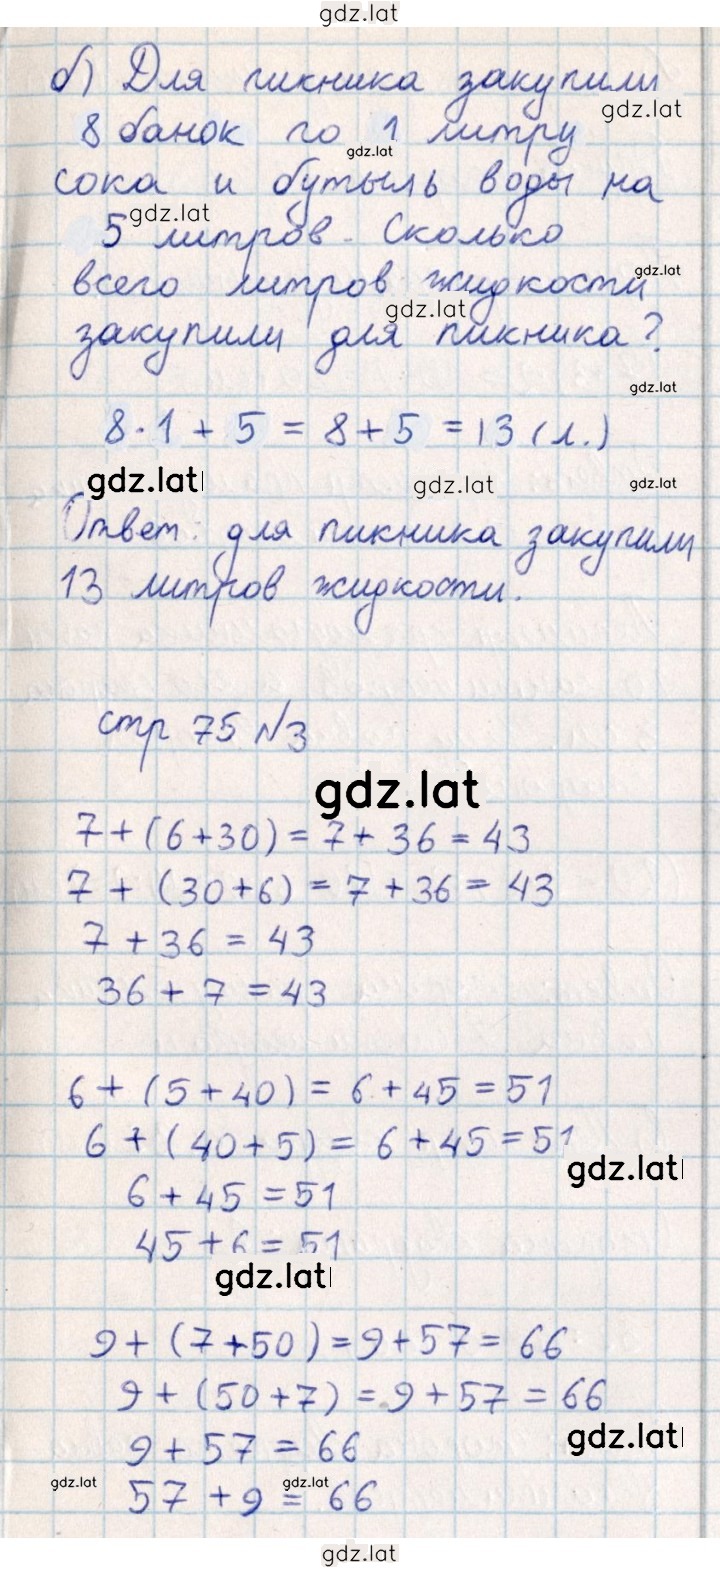 gdz.lat
б) Для пикника закупили
gdz.lat
8 банок по 1 литру
gdz.lat
сока и бутыль воды на
gdz.lat
5 литров. Сколько
gdz.lat
всего литров жидкости
gdz.lat
закупили для пикника?
gdz.lat
8·1 + 5 = 8+5 = 13 (л.)
gdz.lat gdz.lat gdz.lat
Ответ: для пикника закупили
13 литров жидкости.
стр 75 №3
gdz.lat
7+(6+30) = 7+ 36 = 43
7 + (30+6) = 7 +36 = 43
7 +36 = 43
36 + 7 = 43
6 + (5 +40) = 6 +45 = 51
6 + (40+5) = 6 +45 = 51
gdz.lat
6 +45 = 51
45 +6 = 51
gdz.lat
9+ (7+50) = 9+57 = 66
9 + (50+7) = 9 +57 = 66
gdz.lat
9 + 57 = 66
gdz.lat gdz.lat
57 +9 = 66
gdz.lat